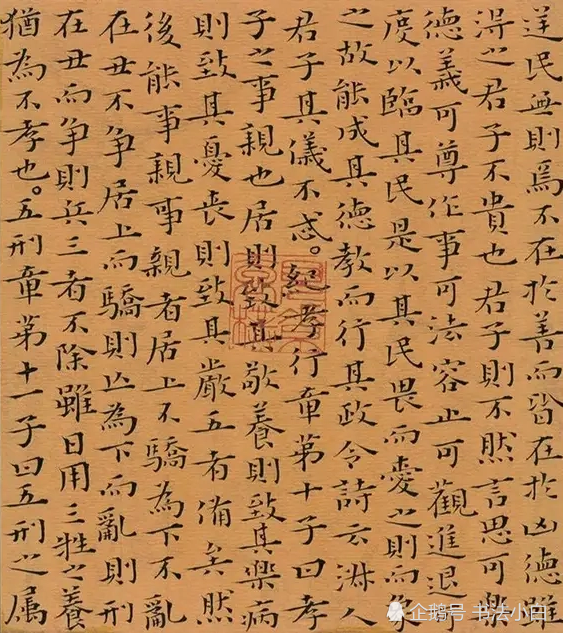 逆民無則焉不在於善而皆在於凶德雖
淂之君子不貴也君子則不然言思可樂
德義可尊作事可法容止可觀進退
度以臨其民是以其民畏而愛之則而象
之故能成其德教而行其政令詩云淋人
君子其儀不忒。紀孝行章第十子曰孝
子之事親也居則致其敬養則致其樂病
則致其憂喪則致其嚴五者備矣然
後能事親事親者居上不驕為下不亂
在丑不争居上而驕則亡為下而亂則刑
在丑而争則兵三者不除雖日用三牲之養
猶為不孝也。五刑章第十一子曰五刑之属
企鹅号 书法小白